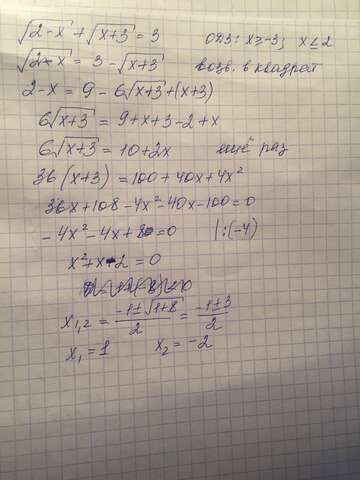 √(2-x) + √(x+3) = 3 ОДЗ: x≥-3; x≤2
√(2-x) = 3 - √(x+3) возв. в квадрат
2-x = 9 - 6√(x+3) + (x+3)
6√(x+3) = 9+x+3-2+x
6√(x+3) = 10+2x ещё раз
36(x+3) = 100+40x+4x²
36x+108-4x²-40x-100=0
-4x²-4x+8=0 |:(-4)
x²+x-2=0
x₁,₂ = (-1±√(1+8))/2 = (-1±3)/2
x₁=1 x₂=-2